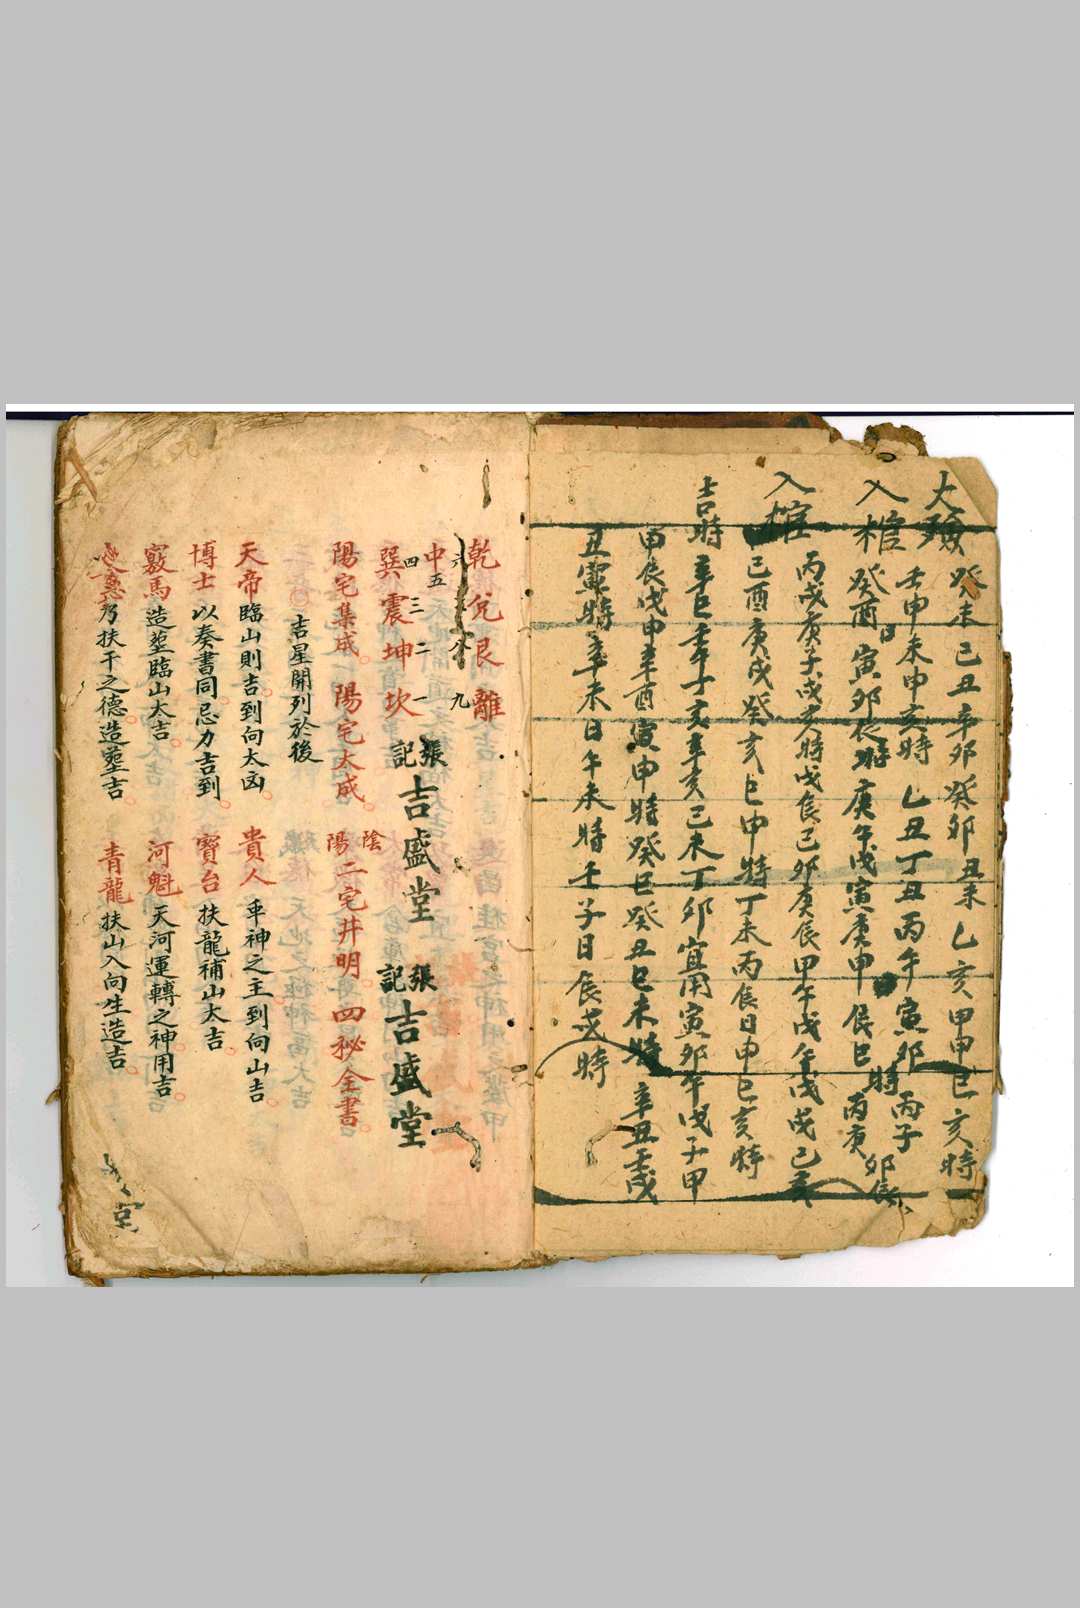 大殮
癸未己丑辛卯癸卯丑未乙亥甲申巳亥時
入棺
壬申未申亥時乙丑丁丑丙午寅卯時丙子卯辰
癸酉日寅卯辰時庚午戊寅庚申日辰巳時丙庚
入棺
丙戌庚子戌亥時戊辰己卯庚辰甲午戊午戊戌己亥
己酉庚戌癸亥巳申時丁未丙辰日申巳亥時
吉時
辛巳壬午丁亥辛亥己未丁卯宜用寅卯午戊子甲
甲辰戊申辛酉寅申時癸巳癸丑巳未時辛丑壬戌
丑寅時辛未日午未時壬子日辰戌時
乾兌艮離
六 八 九
中五
巽震坤坎
四三二一
張記吉盛堂
張記吉盛堂
陽宅集成 陽宅大成 陰陽二宅井明四秘全書
吉星開列於後
天帝臨山則吉到向大凶 貴人車神之主到向山吉
博士以奏書同忌力吉到 寶台扶龍補山大吉
竅馬造塟臨山大吉 河魁天河運轉之神用吉
乃扶干之德造塟吉 青龍扶山入向生造吉
堂